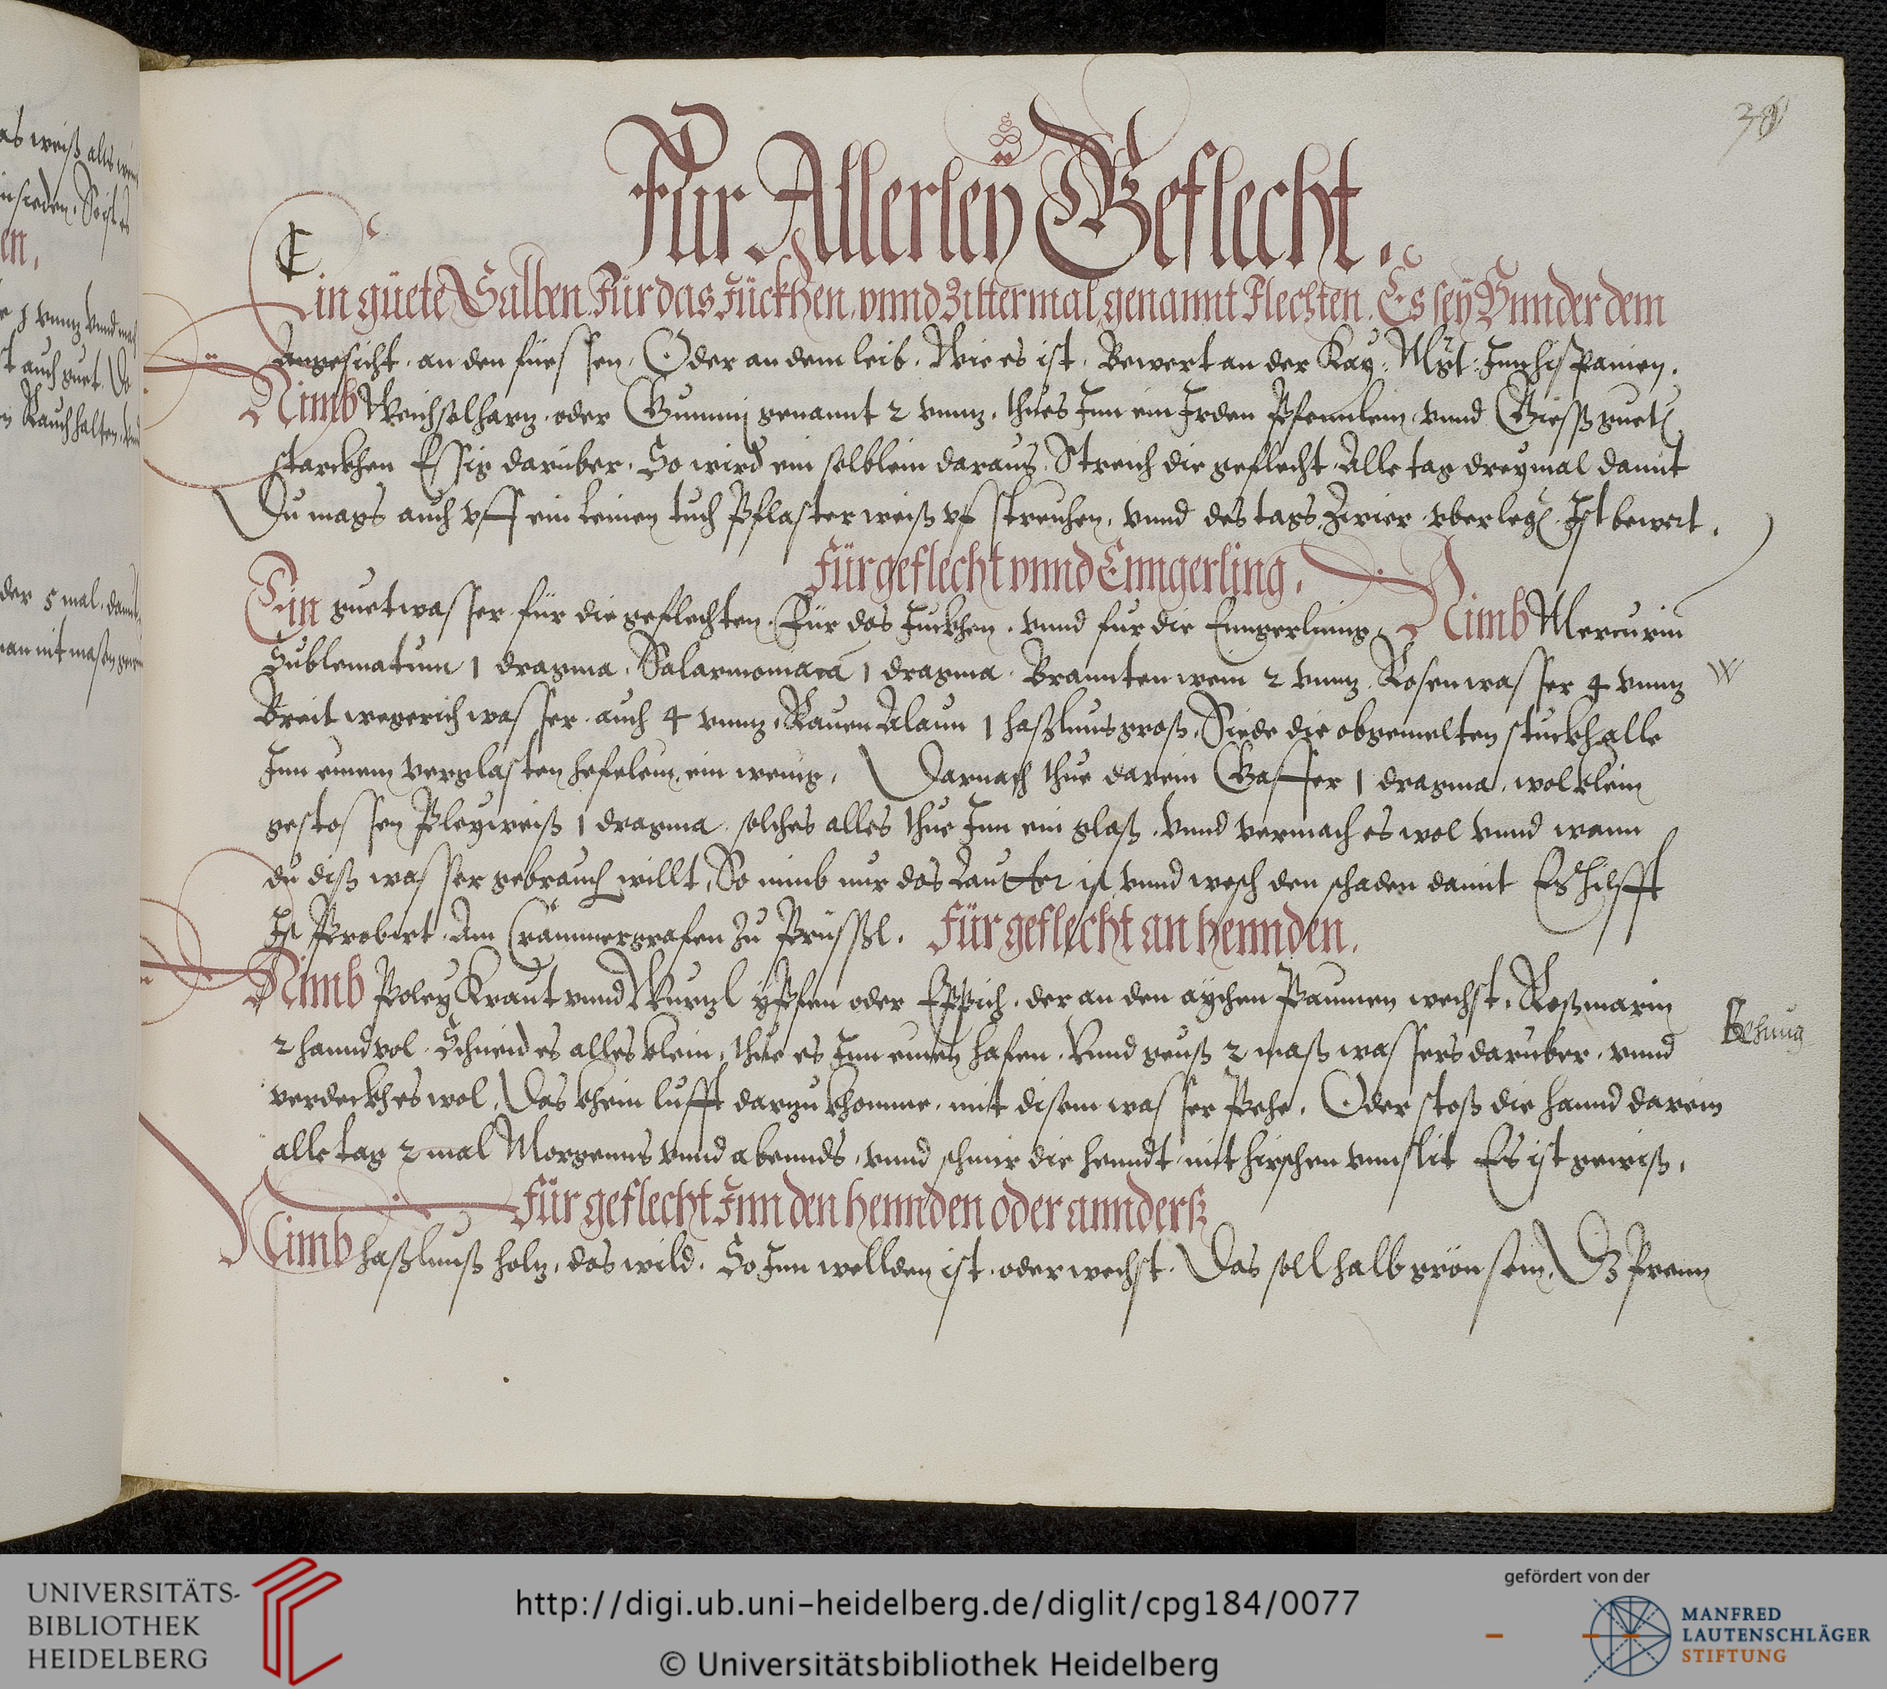 38
Für Allerleÿ Geflecht.
Ein güete Salben Für das Jückhen, vnnd Zittermal genannt Flechten. Es seÿ Vnnder dem
Angesicht. an den füessen, Oder an dem leib. Wie es ist. Bewert an der Kay: Mÿt: Inn hispanien.
Nimb Weichselharz, oder Gummj genannt 2 vnnz, thues Inn ein Irden Pfennlein, vnnd Giess guet
starckhen Essig darüber. So wird ein selblein daraus. Streich die geflecht Alle tag dreymal damit
Du mags auch vff ein leinen tuch Pflasterweiß vf streichen, vnnd des tags Zwier vberleg. Ist bewert.
Für geflecht vnnd Enngerling.
Ein guet wasser für die geflechten. Für das Juckhen. vnnd fur die Enngerlinng. Nimb Mercurin
Sublematum 1 dragma, Salarmomaca 1 dragma. Brannten wein 2 vnnz. Rosenwasser 4 vnnz
W
Breit wegerich wasser auch 4 vnnz, Rauen Alaun 1 haßlnus groß, Siede die obgemelten stuckh alle
Inn einem verglasten hefelein, ein wenig. Darnach thue darein Gaffer 1 dragma, wol klein
gestossen Pleyweiß 1 dragma. solches alles thue Inn ein glaß. vnnd vermach es wol vnnd wann
du diß wasser gebrauch willt, So nimb nur das Lautter ist vnnd wesch den schaden damit Es hilfft
Ist Probirt. Am Crammergrafen zu Prüssl. Für geflecht an hennden.
Nimb Poley Kraut vnnd Wurzl ypfen oder Eppich. der an den aychen Paumen wechst. Roßmarin
2 hanndvol. Schneid es alles klein, thue es Inn einen hafen. Vnnd geuß 2 maß wassers daruber, vnnd
Behung
verdeckh es wol, Das khein lufft darzu khomme. mit disem wasser Pehe. Oder stoß die hannd darein
alle tag 2 mal Morgenns vnnd abennds, vnnd schmir die henndt mit hirschen vnnslit Es ist gewiß.
Für geflecht Inn den hennden oder annderß
Nimb haßlnuß holz, das wild. So Inn wellden ist. oder wechst. Das soll halb grön sein, Dz Prenn
as weiß alls
sieden. So ist es
en.
1 vnnz vnnd
auch guet. Do
Rauch halten,
der 5 mal. damit
man nit maßen
UNIVERSITÄTS-
BIBLIOTHEK
HEIDELBERG
http://digi.ub.uni-heidelberg.de/diglit/cpg184/0077
© Universitätsbibliothek Heidelberg
gefördert von der
MANFRED
LAUTENSCHLÄGER
STIFTUNG